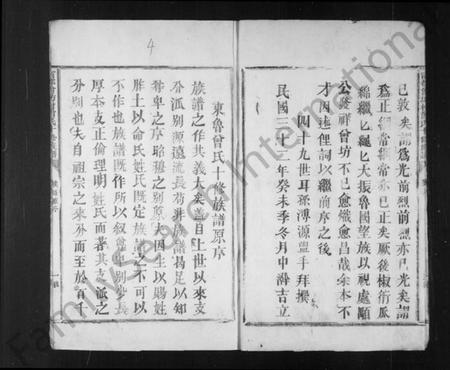 已敦矣謂爲光前烈前烈亦已光矣謂
爲正綱常綱常亦已正矣厥後椒衍瓜
綿繼已繩已大振魯國望族以視處順
公發祥曾坊不已愈熾愈昌哉余本不
才因述俚詞以繼前序之後
四十九世耳孫溥源盥手拜撰
民國三十二年癸未季冬月中澣吉立
東魯曾氏十修族譜原序
族譜之作其義大矣蓋自上世以來支
分派別源遠流長苟非族譜曷足以知
尊卑之序昭穆之別原夫因生以賜姓
胙土以命氏姓氏既定族譜不可以
不作也族譜既作所以叙尊卑別少長
厚本支正倫理明姓氏而著其支派之
分別也夫自祖宗之來分而至於百千
4
FamilySearch International